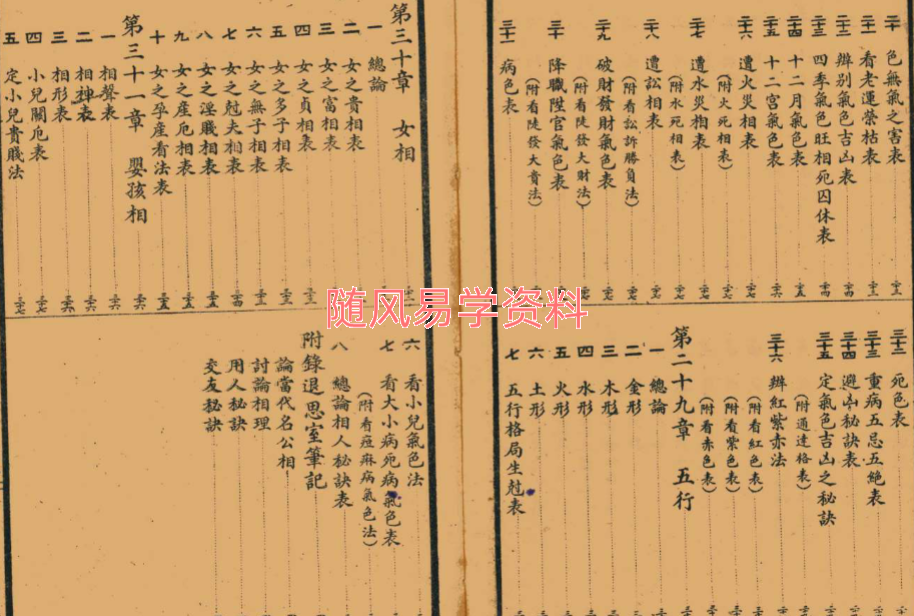 二十 色無氣之害表
二十一 看老運榮枯表
二十二 辦别氣色吉凶表
二十三 四季氣色旺相死囚休表
二十四 十二月氣色表
二十五 十二宮氣色表
二十六 遭火災相表
(附火死相表)
二十七 遭水災相表
(附水死相表)
二十八 遭訟相表
(附看訟訴勝負法)
二十九 破財發財氣色表
(附看陡發大財法)
三十 降職陞官氣色表
(附看陡發大貴法)
三十一 病色表
三十二 死色表
三十三 重病五忌五絕表
三十四 避凶秘訣表
三十五 定氣色吉凶之秘訣
(附通達格表)
三十六 辦紅紫赤法
(附看紅色表)
(附看紫色表)
(附看赤色表)
第二十九章 五行
一 總論
二 金形
三 木形
四 水形
五 火形
六 土形
七 五行格局生尅表
第三十章 女相
一 總論
二 女之貴相表
三 女之富相表
四 女之貞相表
五 女之多子相表
六 女之無子相表
七 女之尅夫相表
八 女之淫賤相表
九 女之產厄相表
十 女之孕產看法表
第三十一章 嬰孩相
一 相聲表
二 相神表
三 相形表
四 小兒關厄表
五 定小兒貴賤法
六 看小兒氣色法
七 看大小病死病氣色表
(附看痘痳病氣色法)
八 總論相人秘訣表
附錄退思室筆記
論當代名公相
討論相理
用人秘訣
交友秘訣
随风易学资料